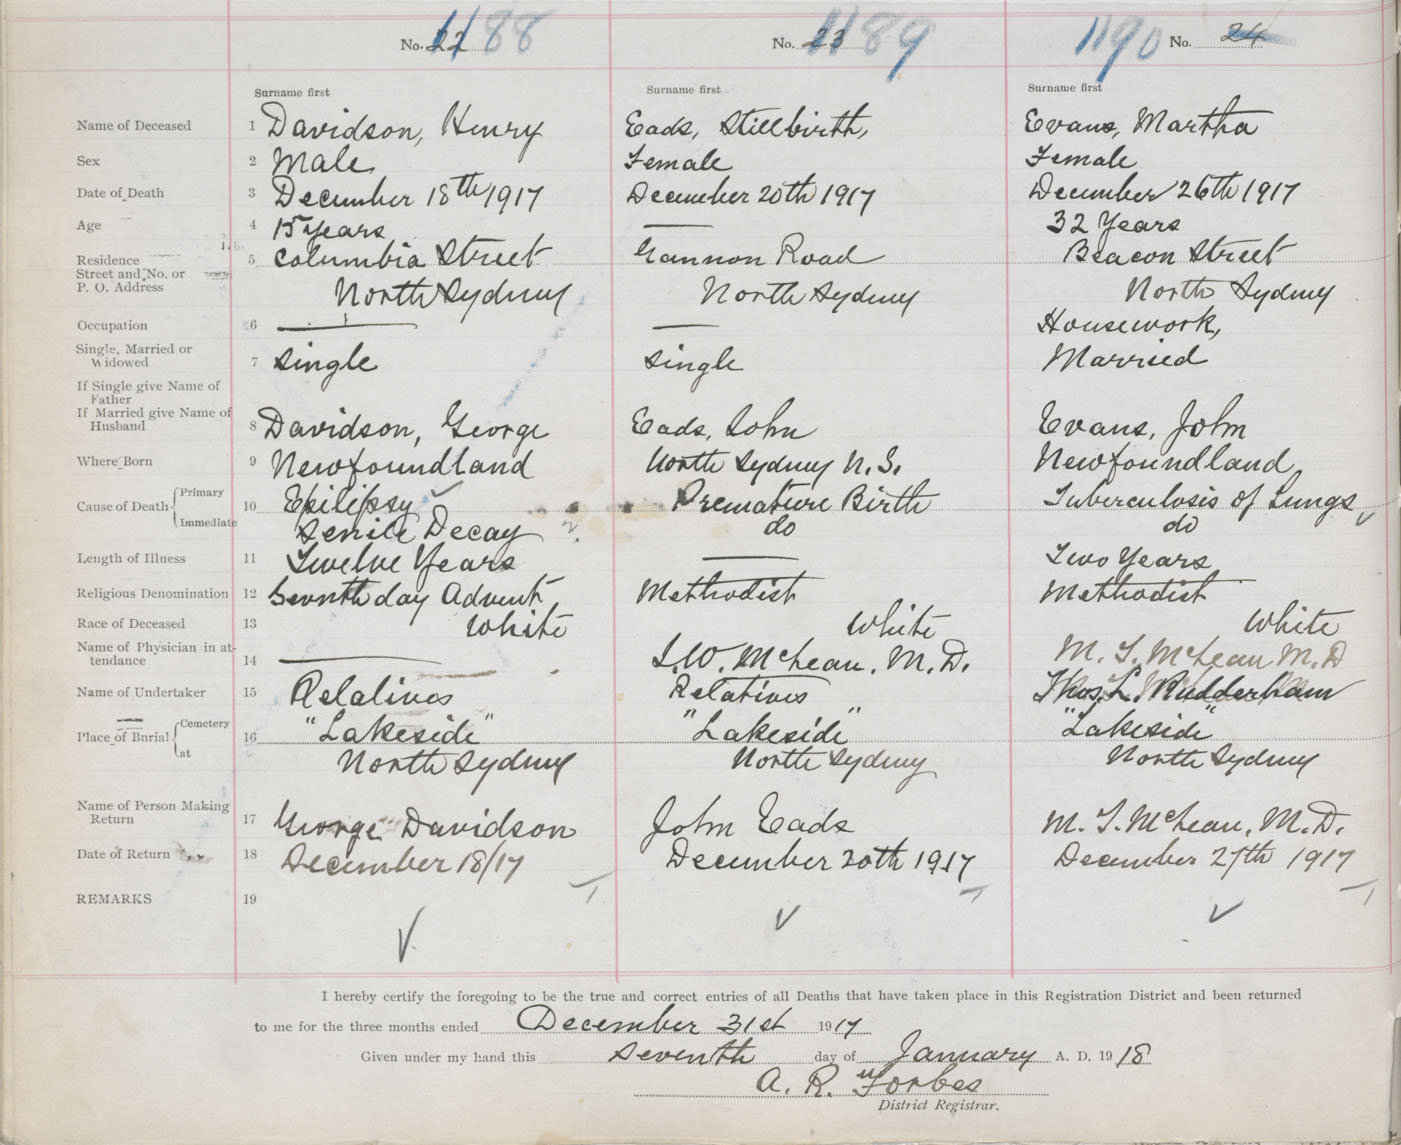 No. 22 1188
No. 23 1189
1190 No. 24
Surname first Surname first Surname first
Name of Deceased 1 Davidson, Henry Eads, Stillbirth, Evans, Martha
Sex 2 Male Female Female
Date of Death 3 December 18th 1917 December 20th 1917 December 26th 1917
Age 4 15 years — 32 Years
Residence 5 Columbia Street Gannon Road Beacon Street
Street and No. or
P. O. Address North Sydney North Sydney North Sydney
Occupation 6 — — Housework,
Single, Married or
Widowed 7 Single Single Married
If Single give Name of
Father
If Married give Name of
Husband 8 Davidson, George Eads, John Evans, John
Where Born 9 Newfoundland North Sydney N.S. Newfoundland
Cause of Death { Primary 10 Epilipsy Premature Birth Tuberculosis of Lungs
Immediate Senile Decay do do
Length of Illness 11 Twelve Years — Two Years
Religious Denomination 12 Seventh day Advent Methodist Methodist
Race of Deceased 13 White White White
Name of Physician in at-
tendance 14 — L.W. McLean, M.D. M. T. McLean M.D
Name of Undertaker 15 Relatives Relatives Thos. L. Rudderham
Place of Burial { Cemetery 16 "Lakeside" "Lakeside" "Lakeside"
at North Sydney North Sydney North Sydney
Name of Person Making
Return 17 George Davidson John Eads M. T. McLean, M.D.
Date of Return 18 December 18/17 December 20th 1917 December 27th 1917
REMARKS 19
I hereby certify the foregoing to be the true and correct entries of all Deaths that have taken place in this Registration District and been returned
to me for the three months ended December 31st 1917
Given under my hand this Seventh day of January A. D. 1918
A. R. Forbes
District Registrar.